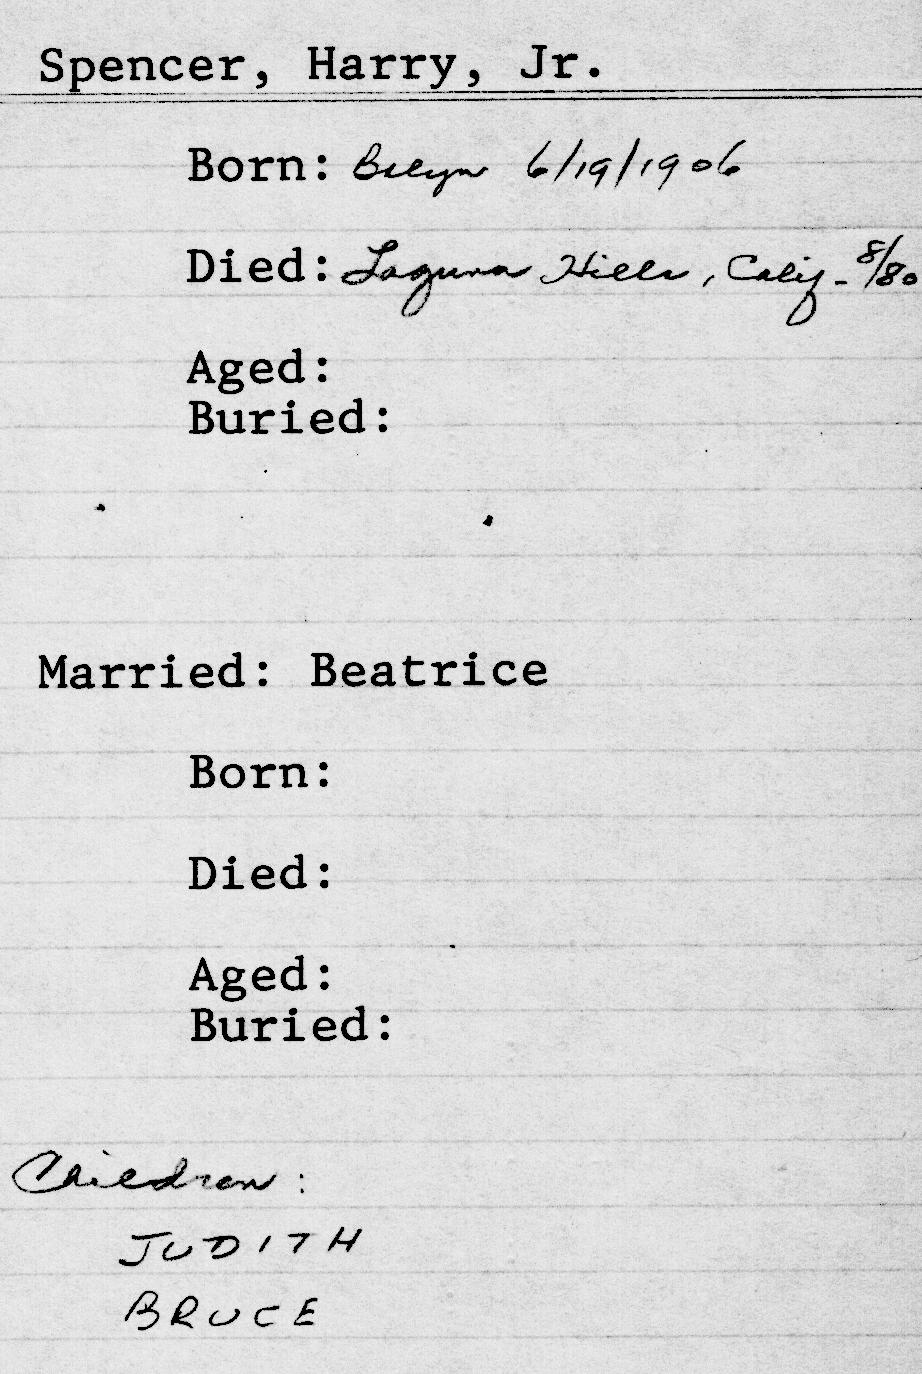 Spencer, Harry, Jr.
Born: Bklyn 6/19/1906
Died: Laguna Hills, Calif - 8/80
Aged:
Buried:
Married: Beatrice
Born:
Died:
Aged:
Buried:
Children:
JUDITH
BRUCE